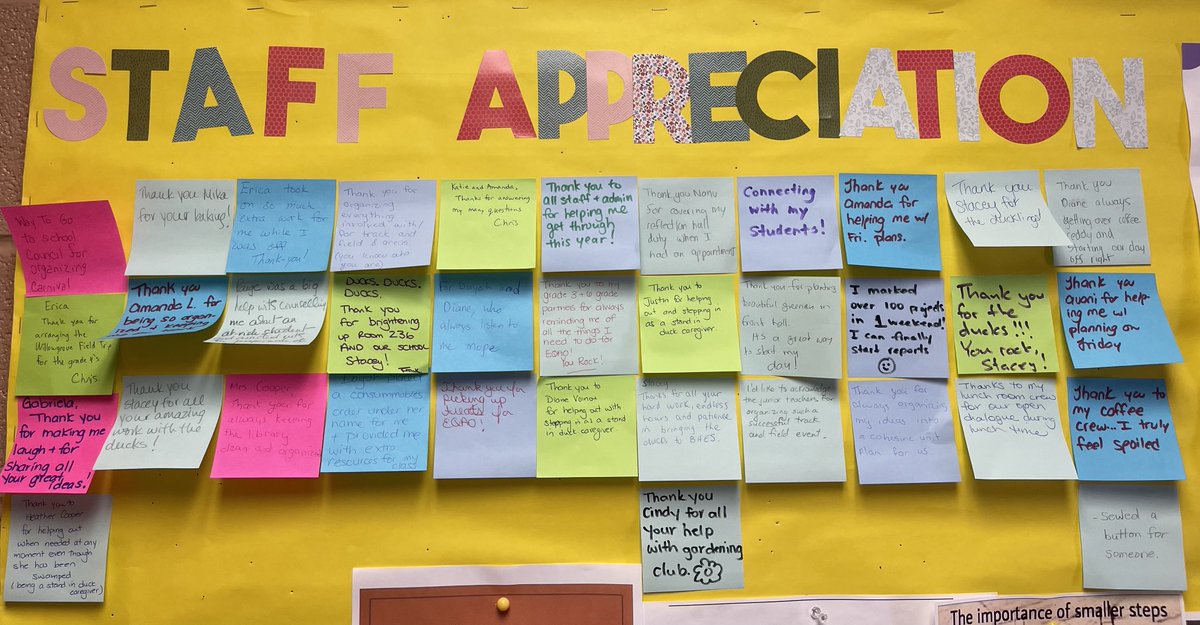 STAFF APPRECIATION
Way To Go
to School
Council for
organizing
Carnival
Thank you Mika
for your baking!
Erica took
on so much
extra work for
me while I
was off
Thank-you!
Thank you for
organizing
everything
involved with
our track and
field & areas.
(you know who
you are)
Katie and Amanda,
Thanks for answering
my many questions
Chris
Thank you to
all staff + admin
for helping me
get through
this year!
Thank you Nanu
for covering my
reflection hall
duty when I
had an appointment
Connecting
with my
Students!
Thank you
Amanda for
helping me w/
Fri. plans.
Thank you
Stacey for
the duckling!
Thank you
Diane always
getting our coffee
ready and
starting our day
off right
Erica
Thank you for
arranging the
Willowgrove Field Trip
for the grade 1's
Chris
Thank you
Amanda L. for
being so organ-
Paige was a big
help with counselling
me about an
Ducks. Ducks.
Ducks.
Thank you
for brightening
up Room 236
AND our SCHOOL
Stacey!
Diane, who
always listen to
me mope
Thank you to my
grade 3 + 6 grade
partners for always
reminding me of
all the things I
need to do for
EQAO!
You Rock!
Thank you to
Justin for helping
out and stepping in
as a stand in
duck caregiver
Thank you for planting
beautiful greenery in
front hall.
It's a great way
to start my
day!
I marked
over 100 projects
in 1 weekend!
I can finally
start reports
Thank you
for the
ducks!!!
You rock,
Stacey!
Thank you
for help-
ing me w/
planning on
friday
Gabriela,
Thank you
for making me
laugh + for
sharing all
your great
ideas!
Thank you
Stacey for all
your amazing
work with the
ducks!
Mrs Cooper
Thank you for
always keeping
the library
clean and organized
a consummables
order under her
name for me
+ provided me
with extra
resources for my
class
Thank you for
picking up
EQAO!
Thank you to
Diane Vernon
for helping out with
stepping in as a stand
in duck caregiver
Stacey
Thanks for all your
hard work, endless
hours, and patience
in bringing the
ducks to BHES.
I'd like to acknowledge
the junior teachers for
organizing such a
successful track
and field event.
Thank you for
always organizing
my ideas into
a cohesive unit
plan for us.
Thanks to my
lunch room crew
for our open
dialogue during
lunch time
Thank you to
my coffee
crew... I truly
feel spoiled
Thank you to
Heather Cooper
for helping out
when needed at any
moment even though
she has been
swamped
(being a stand in duck
caregiver)
Thank you
Cindy for all
your help
with gardening
club.
- Sewed a
button for
someone.
The importance of smaller steps